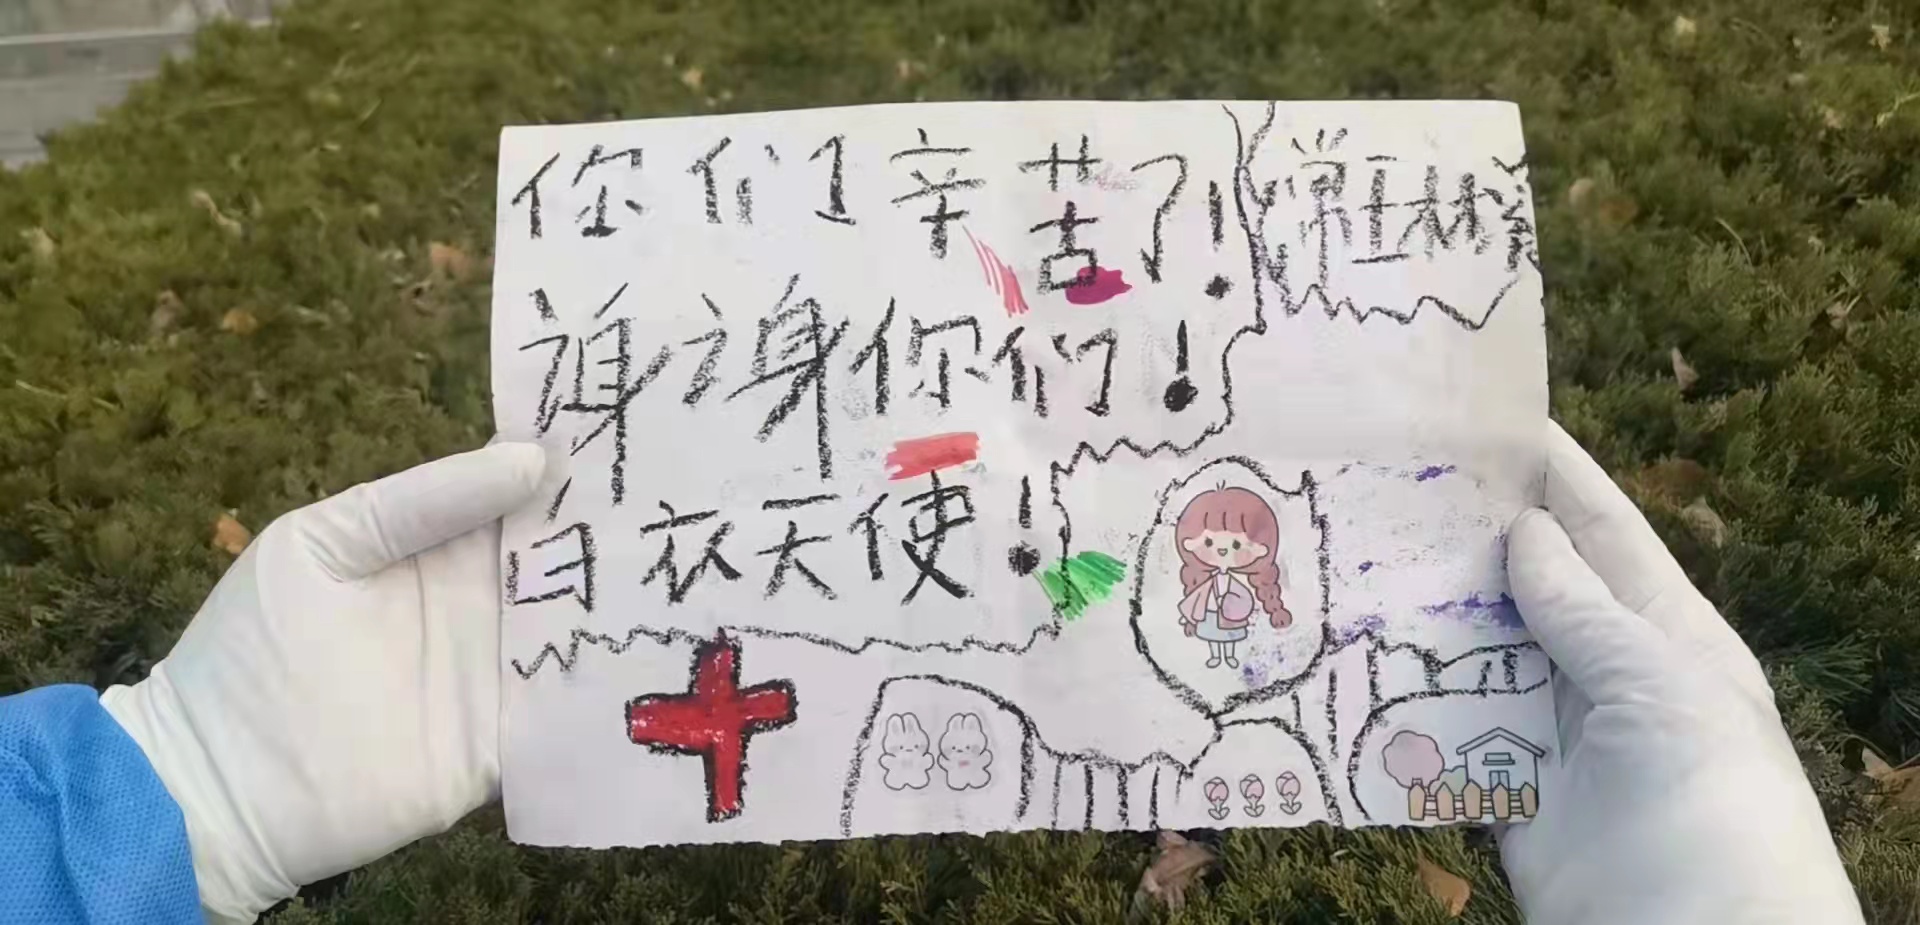 你们辛苦了!
谢谢你们!
白衣天使!